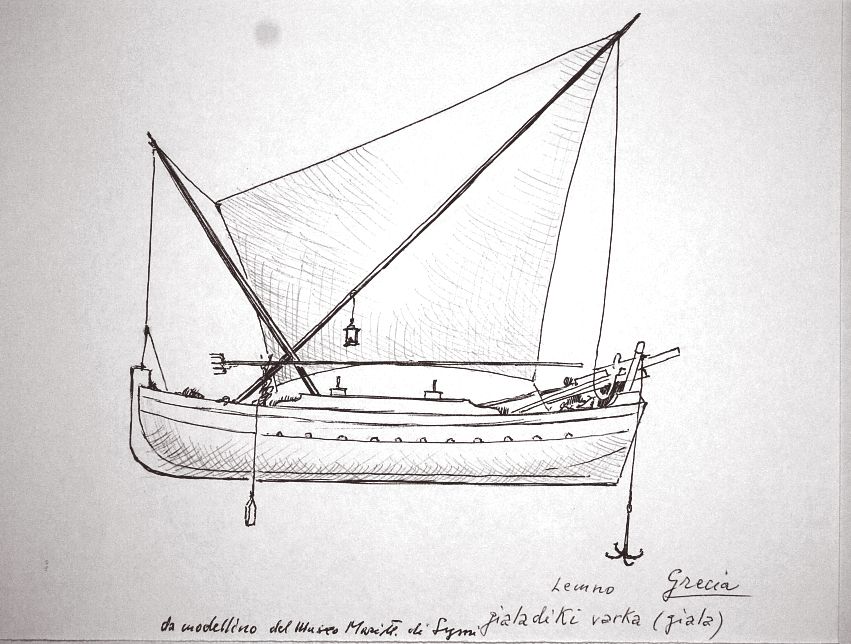 Lemno Grecia
da modellino del Museo Maritt. di Symi gialadiki varka (giala)